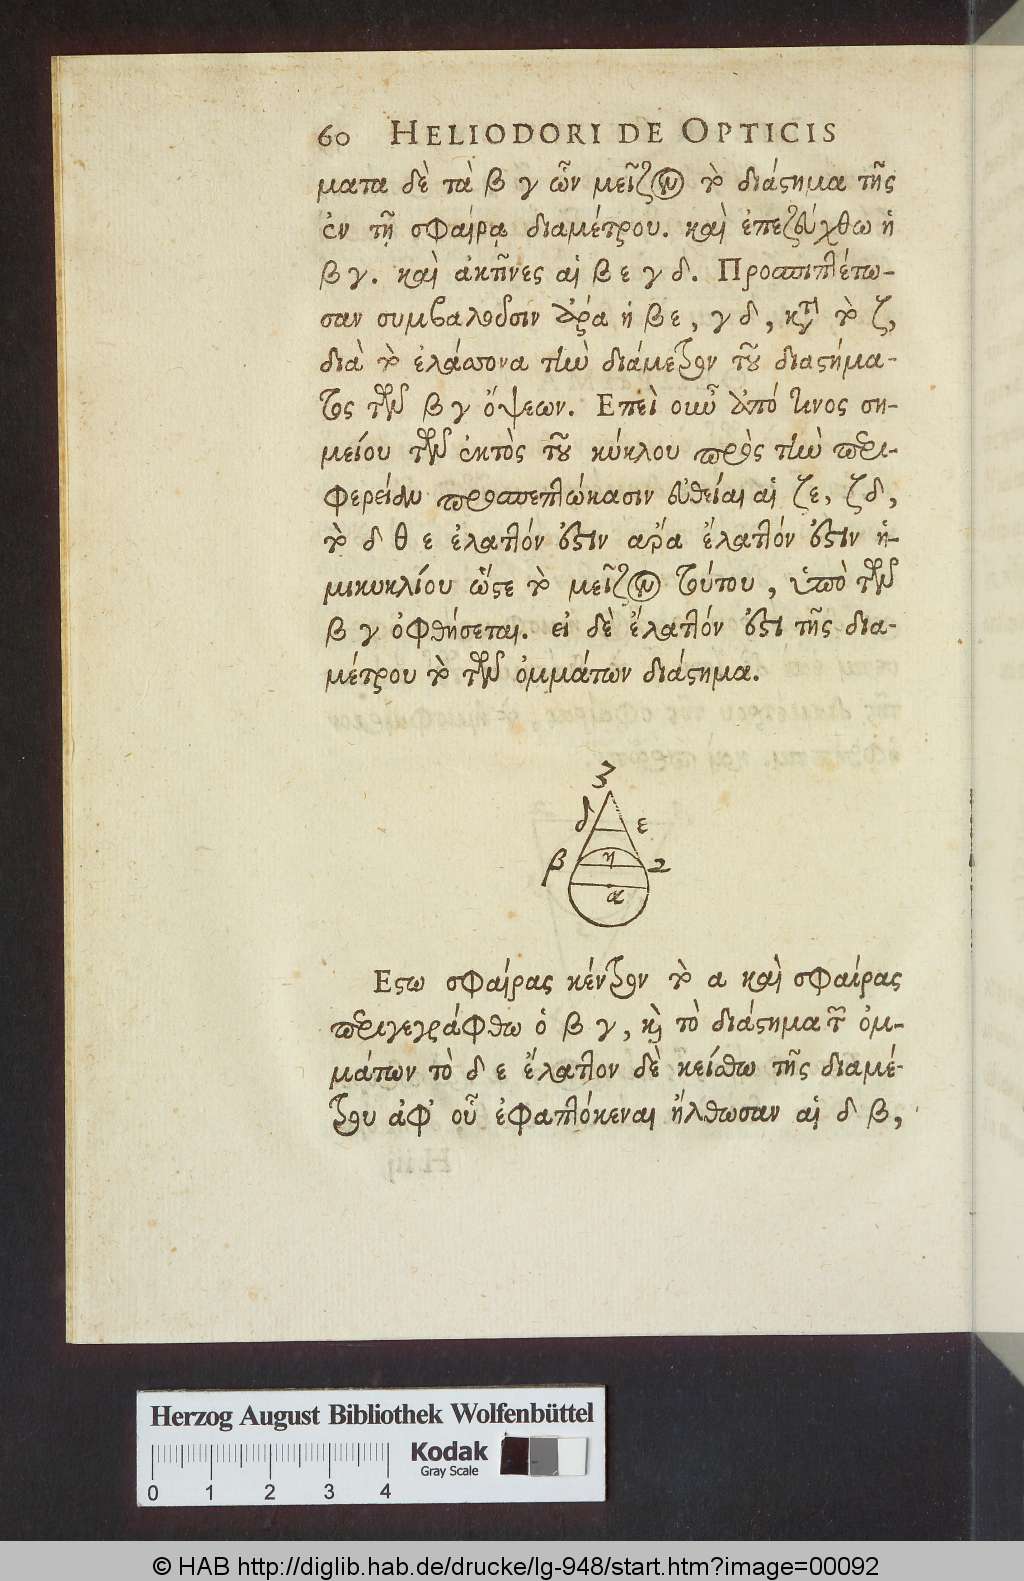 60 HELIODORI DE OPTICIS
ματα δὲ τὰ β γ ὧν μεῖζον τὸ διάστημα τῆς
ἐν τῇ σφαίρᾳ διαμέτρου. καὶ ἐπεζεύχθω ἡ
β γ. καὶ ἀκτῖνες αἱ β ε γ δ. Προσπιπτέτω-
σαν συμβαλοῦσιν ἄρα ἡ β ε, γ δ, κατὰ τὸ ζ,
διὰ τὸ ἐλάσσονα τὴν διάμετρον τοῦ διαστήμα-
τος τῶν β γ ὄψεων. Επεὶ οὖν ἀπό τινος ση-
μείου τῶν ἐκτὸς τοῦ κύκλου πρὸς τὴν περι-
φερείαν προσπεπτώκασιν εὐθείαι αἱ ζε, ζδ,
τὸ δ θ ε ἐλαττόν ἐστιν αρα ἔλαττόν ἐστιν ἡ-
μικυκλίου ὥστε τὸ μεῖζον τούτου, ὑπὸ τῶν
β γ ὀφθήσεται. εἰ δὲ ἔλαττόν ἐστι τῆς δια-
μέτρου τὸ τῶν ὀμμάτων διάστημα.
ζ
δ ε
β η γ
α
Εστω σφαίρας κέντρον τὸ α καὶ σφαίρας
περιγεγράφθω ὁ β γ, καὶ τὸ διάστημα τῶν ὀμ-
μάτων τὸ δ ε ἔλαττον δὲ κείσθω τῆς διαμέ-
τρου ἀφ' οὗ ἐφαπτόκεναι ἤλθωσαν αἱ δ β,
Herzog August Bibliothek Wolfenbüttel
Kodak
Gray Scale
0 1 2 3 4
© HAB http://diglib.hab.de/drucke/lg-948/start.htm?image=00092